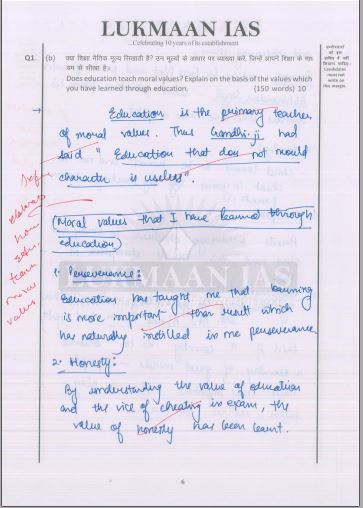 LUKMAAN IAS
...Celebrating 10 years of its establishment
Q1. (b) क्या शिक्षा नैतिक मूल्य सिखाती है? उन मूल्यों के आधार पर व्याख्या करें, जिन्हें आपने शिक्षा के माध्यम से सीखा है।
Does education teach moral values? Explain on the basis of the values which you have learned through education. (150 words) 10
उम्मीदवारों को इस हाशिए में नहीं लिखना चाहिए।
Candidates must not write on this margin.
→ Education is the primary teacher
of moral values. Thus Gandhi-ji had
said " Education that does not mould
character is useless".
elaborate
how
edu.
teach
moral
values
Moral values that I have learned through
education
1. Perseverance:
Education has taught me that learning
is more important than result which
has naturally instilled in me perseverance.
LUKMAAN IAS
2. Honesty:
By understanding the value of education
and the vice of cheating in exam, the
value of honesty has been learnt.
6